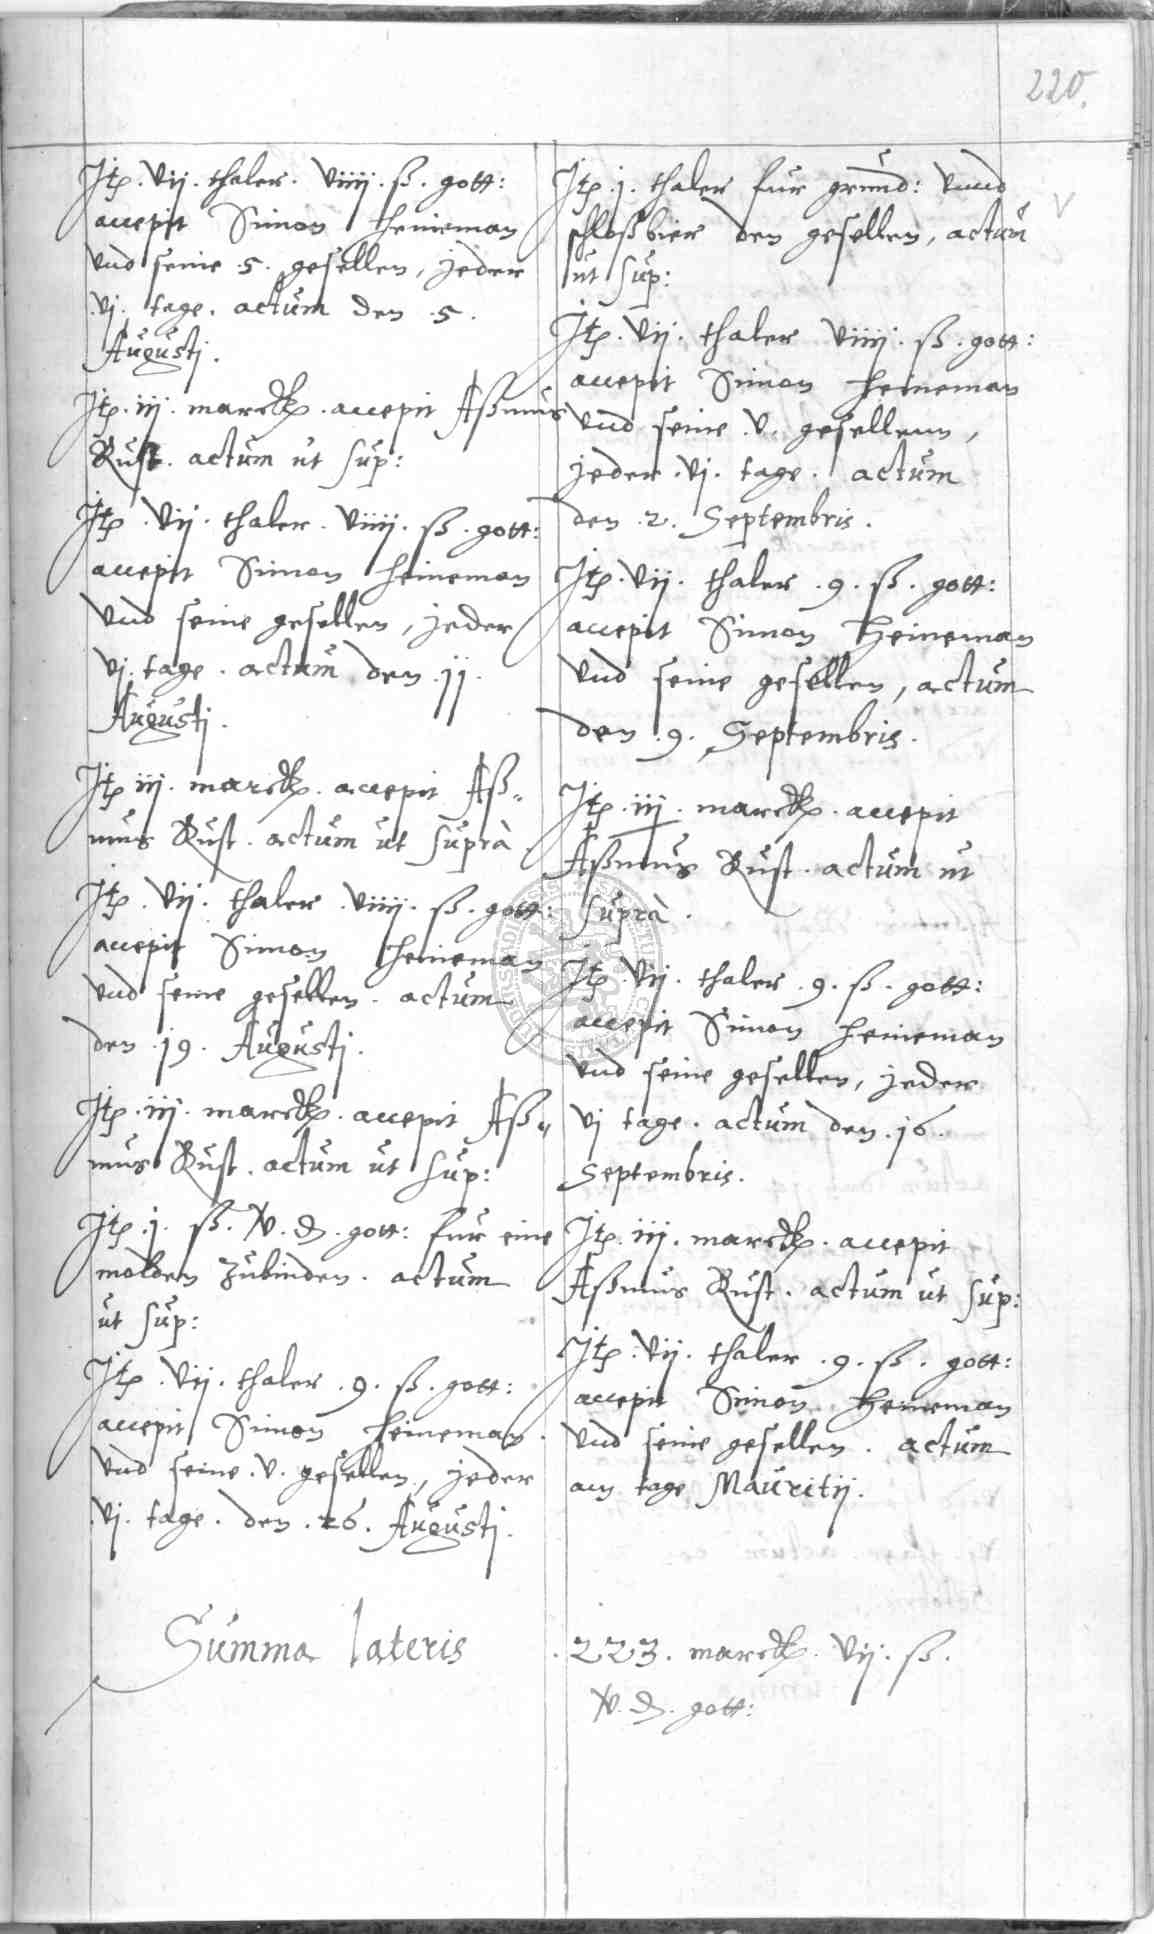 220.
Itē. vij. thaler. viiij. ß. gott:
accepit Simon Heineman
vnd seine .5. gesellen, jeder
.vj. tage. actum den .5.
Augustj.
Itē. iij. marck. accepit Aßmus
Rust. actum ut sup:
Itē. vij. thaler. viiij. ß. gott:
accepit Simon Heineman
vnd seine gesellen, jeder
vj. tage. actum den .jj.
Augustj.
Itē iij. marck. accepit Aß-
mus Rust. actum ut suprà.
Itē. vij. thaler viiij. ß. gott:
accepit Simon Heineman
vnd seine gesellen. actum
den .19. Augustj.
Itē. iij. marck. accepit Aß-
mus Rust. actum ut sup:
Itē. j. ß. gott: fur eine
molden zubinden. actum
ut sup:
Itē. vij. thaler .9. ß. gott:
accepit Simon Heineman.
vnd seine .v. gesellen, jeder
.vj. tage. den .26. Augustj.
Itē. j. thaler fur grund: vnnd
schloßbier den gesellen, actum
ut sup:
Itē. vij. thaler viiij. ß. gott:
accepit Simon Heineman
vnd seine .v. gesellenn,
jeder .vj. tage. actum
den .2. Septembris.
Itē. vij. thaler .9. ß. gott:
accepit Simon Heineman
vnd seine gesellen, actum
den .9. Septembris.
Itē. iij. marck. accepit
Aßmus Rust. actum ut
suprà.
Itē. vij. thaler .9. ß. gott:
accepit Simon Heineman
vnd seine gesellen, jeder
vj tage. actum den .16.
Septembris.
Itē. iij. marck. accepit
Aßmus Rust. actum ut sup:
Itē. vij. thaler .9. ß. gott:
accepit Simon Heineman
vnd seine gesellen. actum
am tage Mauritij.
Summa lateris . 223. marck. vij. ß.
gott: